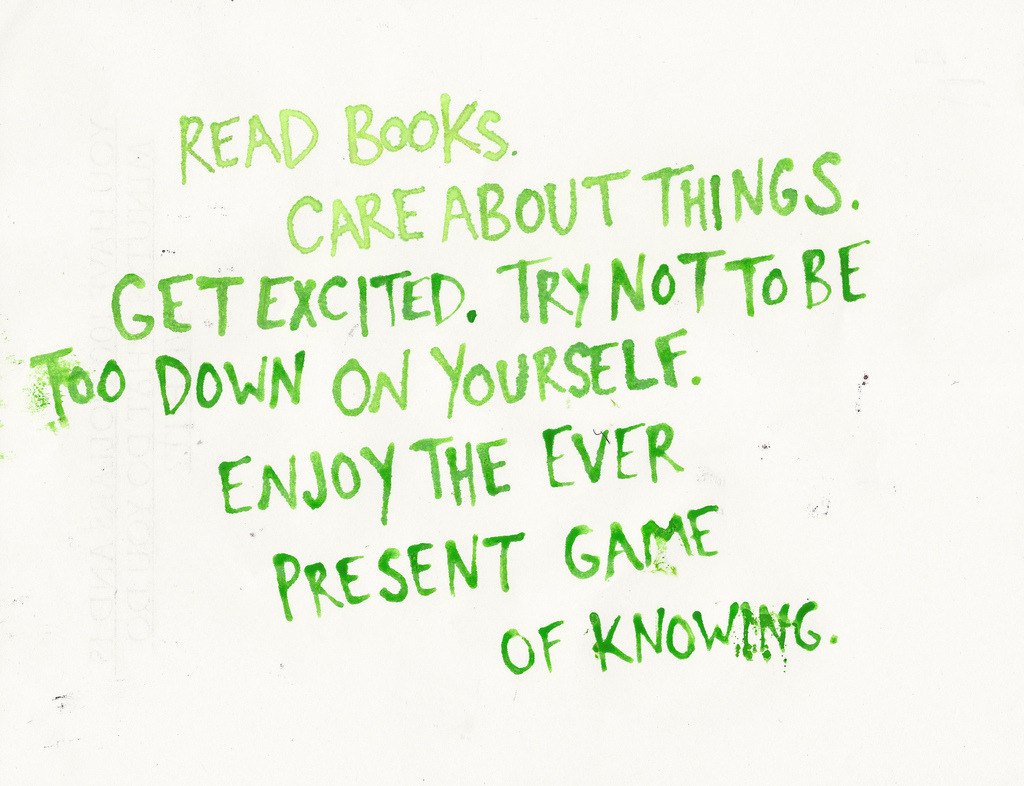 READ BOOKS.
CARE ABOUT THINGS.
GET EXCITED. TRY NOT TO BE
TOO DOWN ON YOURSELF.
ENJOY THE EVER
PRESENT GAME
OF KNOWING.